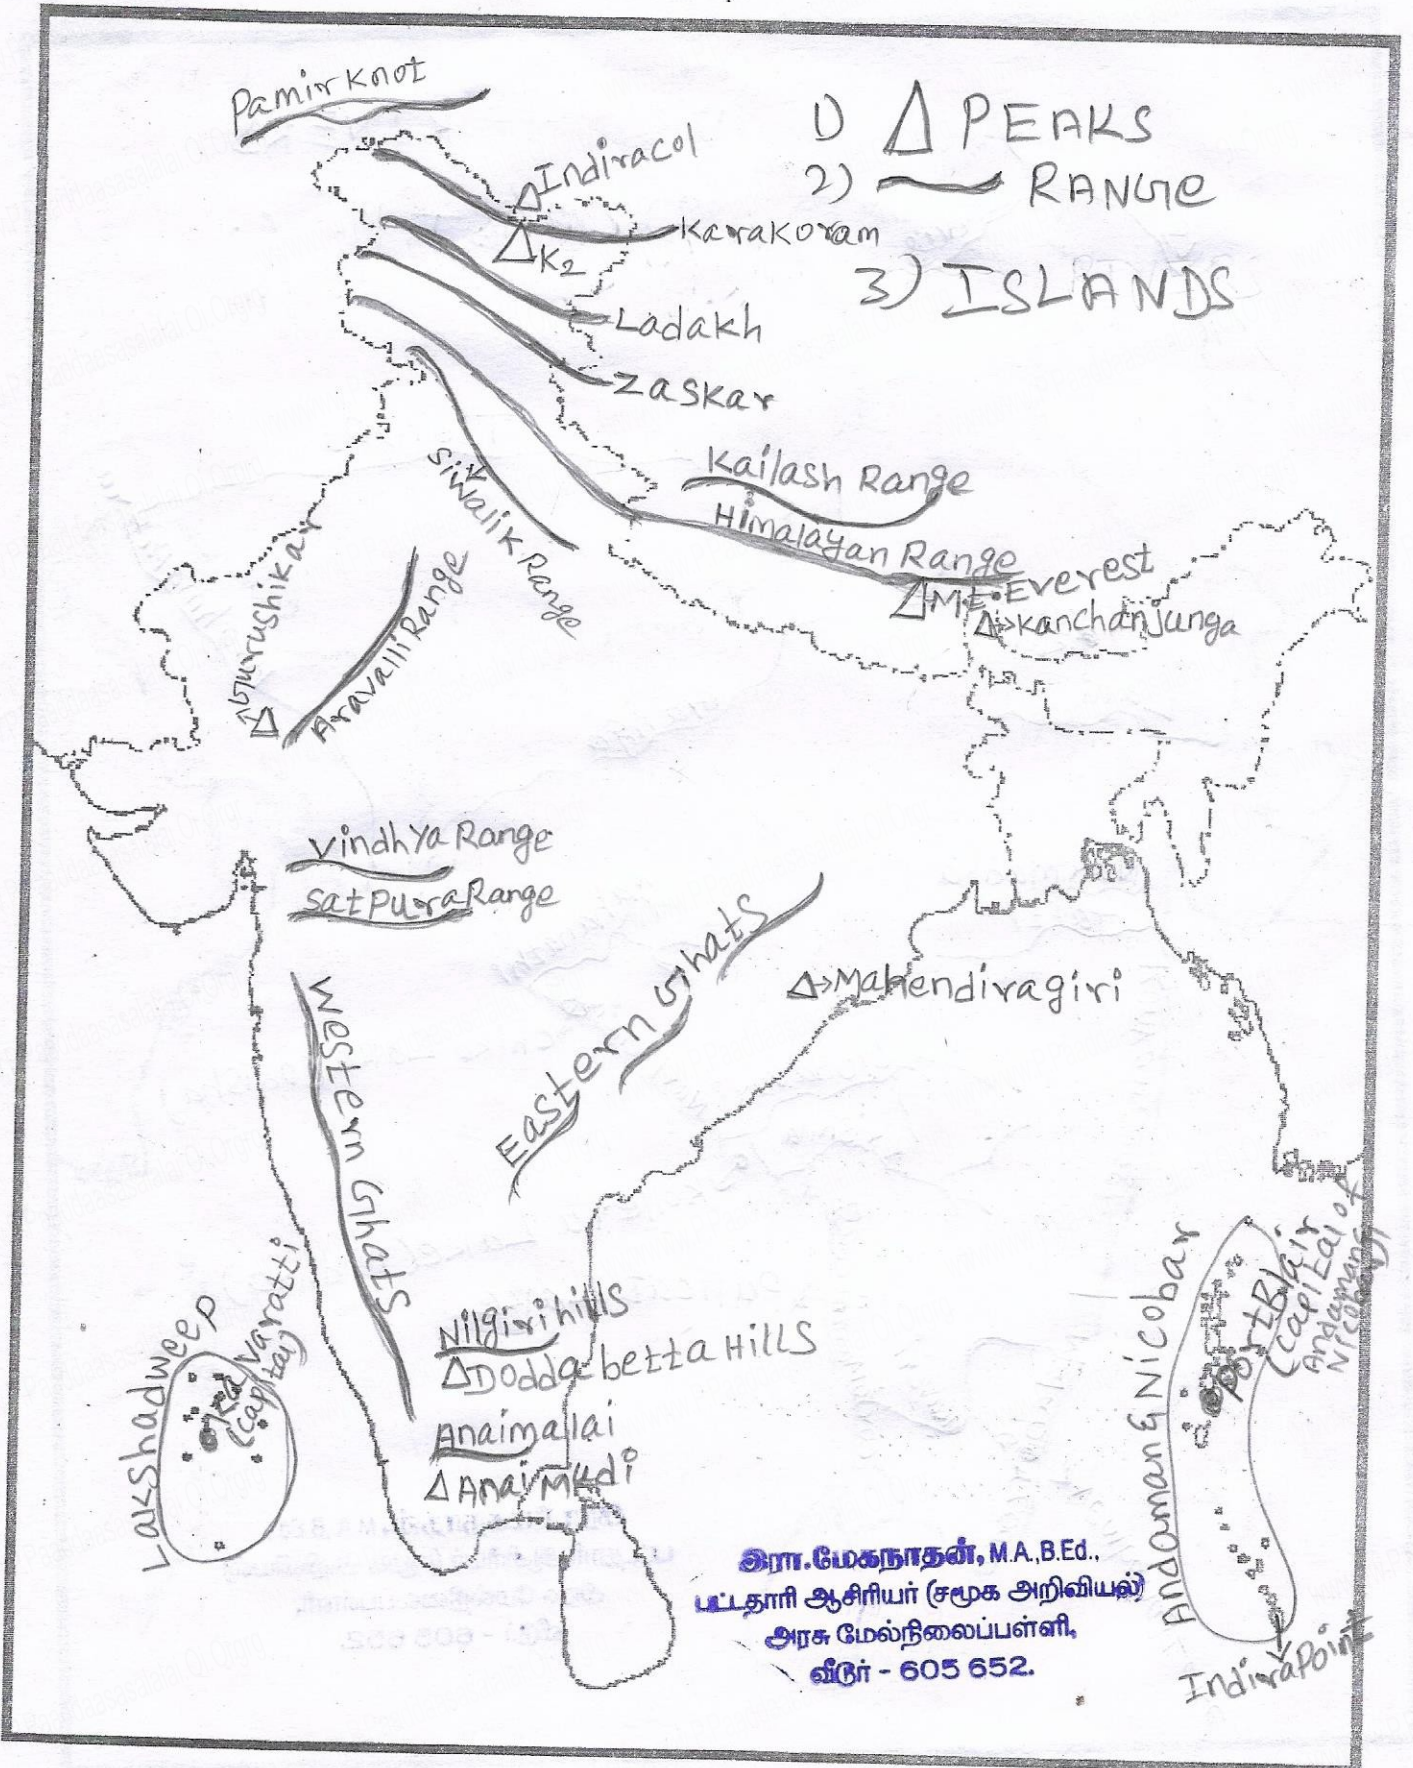 Pamir Knot
1) Δ PEAKS
2) RANGE
3) ISLANDS
Δ Indiracol
Karakoram
Δ K2
Ladakh
Zaskar
Kailash Range
Siwalik Range
Himalayan Range
Δ Mt. Everest
Δ→Kanchanjunga
Gurushikar
Aravalli Range
Vindhya Range
Satpura Range
Eastern Ghats
Δ→Mahendiragiri
Western Ghats
Nilgiri hills
Δ Dodda betta Hills
Anaimalai
Δ Anaimudi
Lakshadweep
Kavaratti
(capital)
Andaman & Nicobar
Port Blair
(capital of
Andaman &
Nicobar
Indira Point
இரா.மேகநாதன், M.A.,B.Ed.,
பட்டதாரி ஆசிரியர் (சமூக அறிவியல்)
அரசு மேல்நிலைப்பள்ளி,
வீடூர் - 605 652.